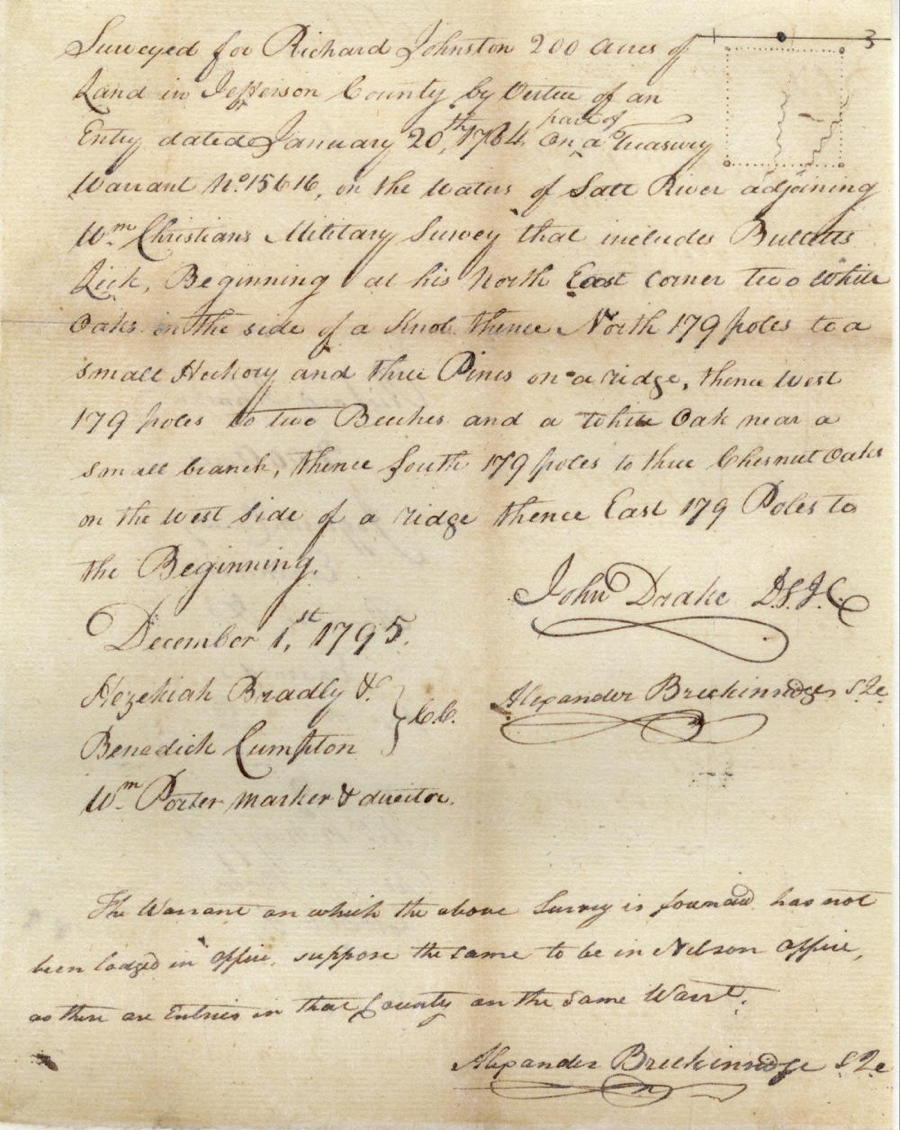 3
Surveyed for Richard Johnston 200 acres of
Land in Jefferson County by Virtue of an
Entry dated January 20th, 1784, on a part of Treasury
Warrant No. 15616, on the Waters of Salt River adjoining
Wm. Christians Military Survey that includes Bullitts
Lick, Beginning at his North East corner two White
Oaks on the side of a Knob thence North 179 poles to a
small Hickory and three Pines on a ridge, thence West
179 poles to two Beeches and a White Oak near a
small branch, thence South 179 poles to three Chesnut Oaks
on the West Side of a ridge thence East 179 Poles to
the Beginning.
John Drake D.S.J.C.
December 1st, 1795.
Hezekiah Bradly &
Benedick Cumpton } C.C.
Alexander Breckinridge S Je
Wm Porter marker & director.
The Warrant on which the above Survey is found has not
been lodged in office, suppose the same to be in Nelson office,
as there are Entries in that County on the same Warrt.
Alexander Breckinridge S Je